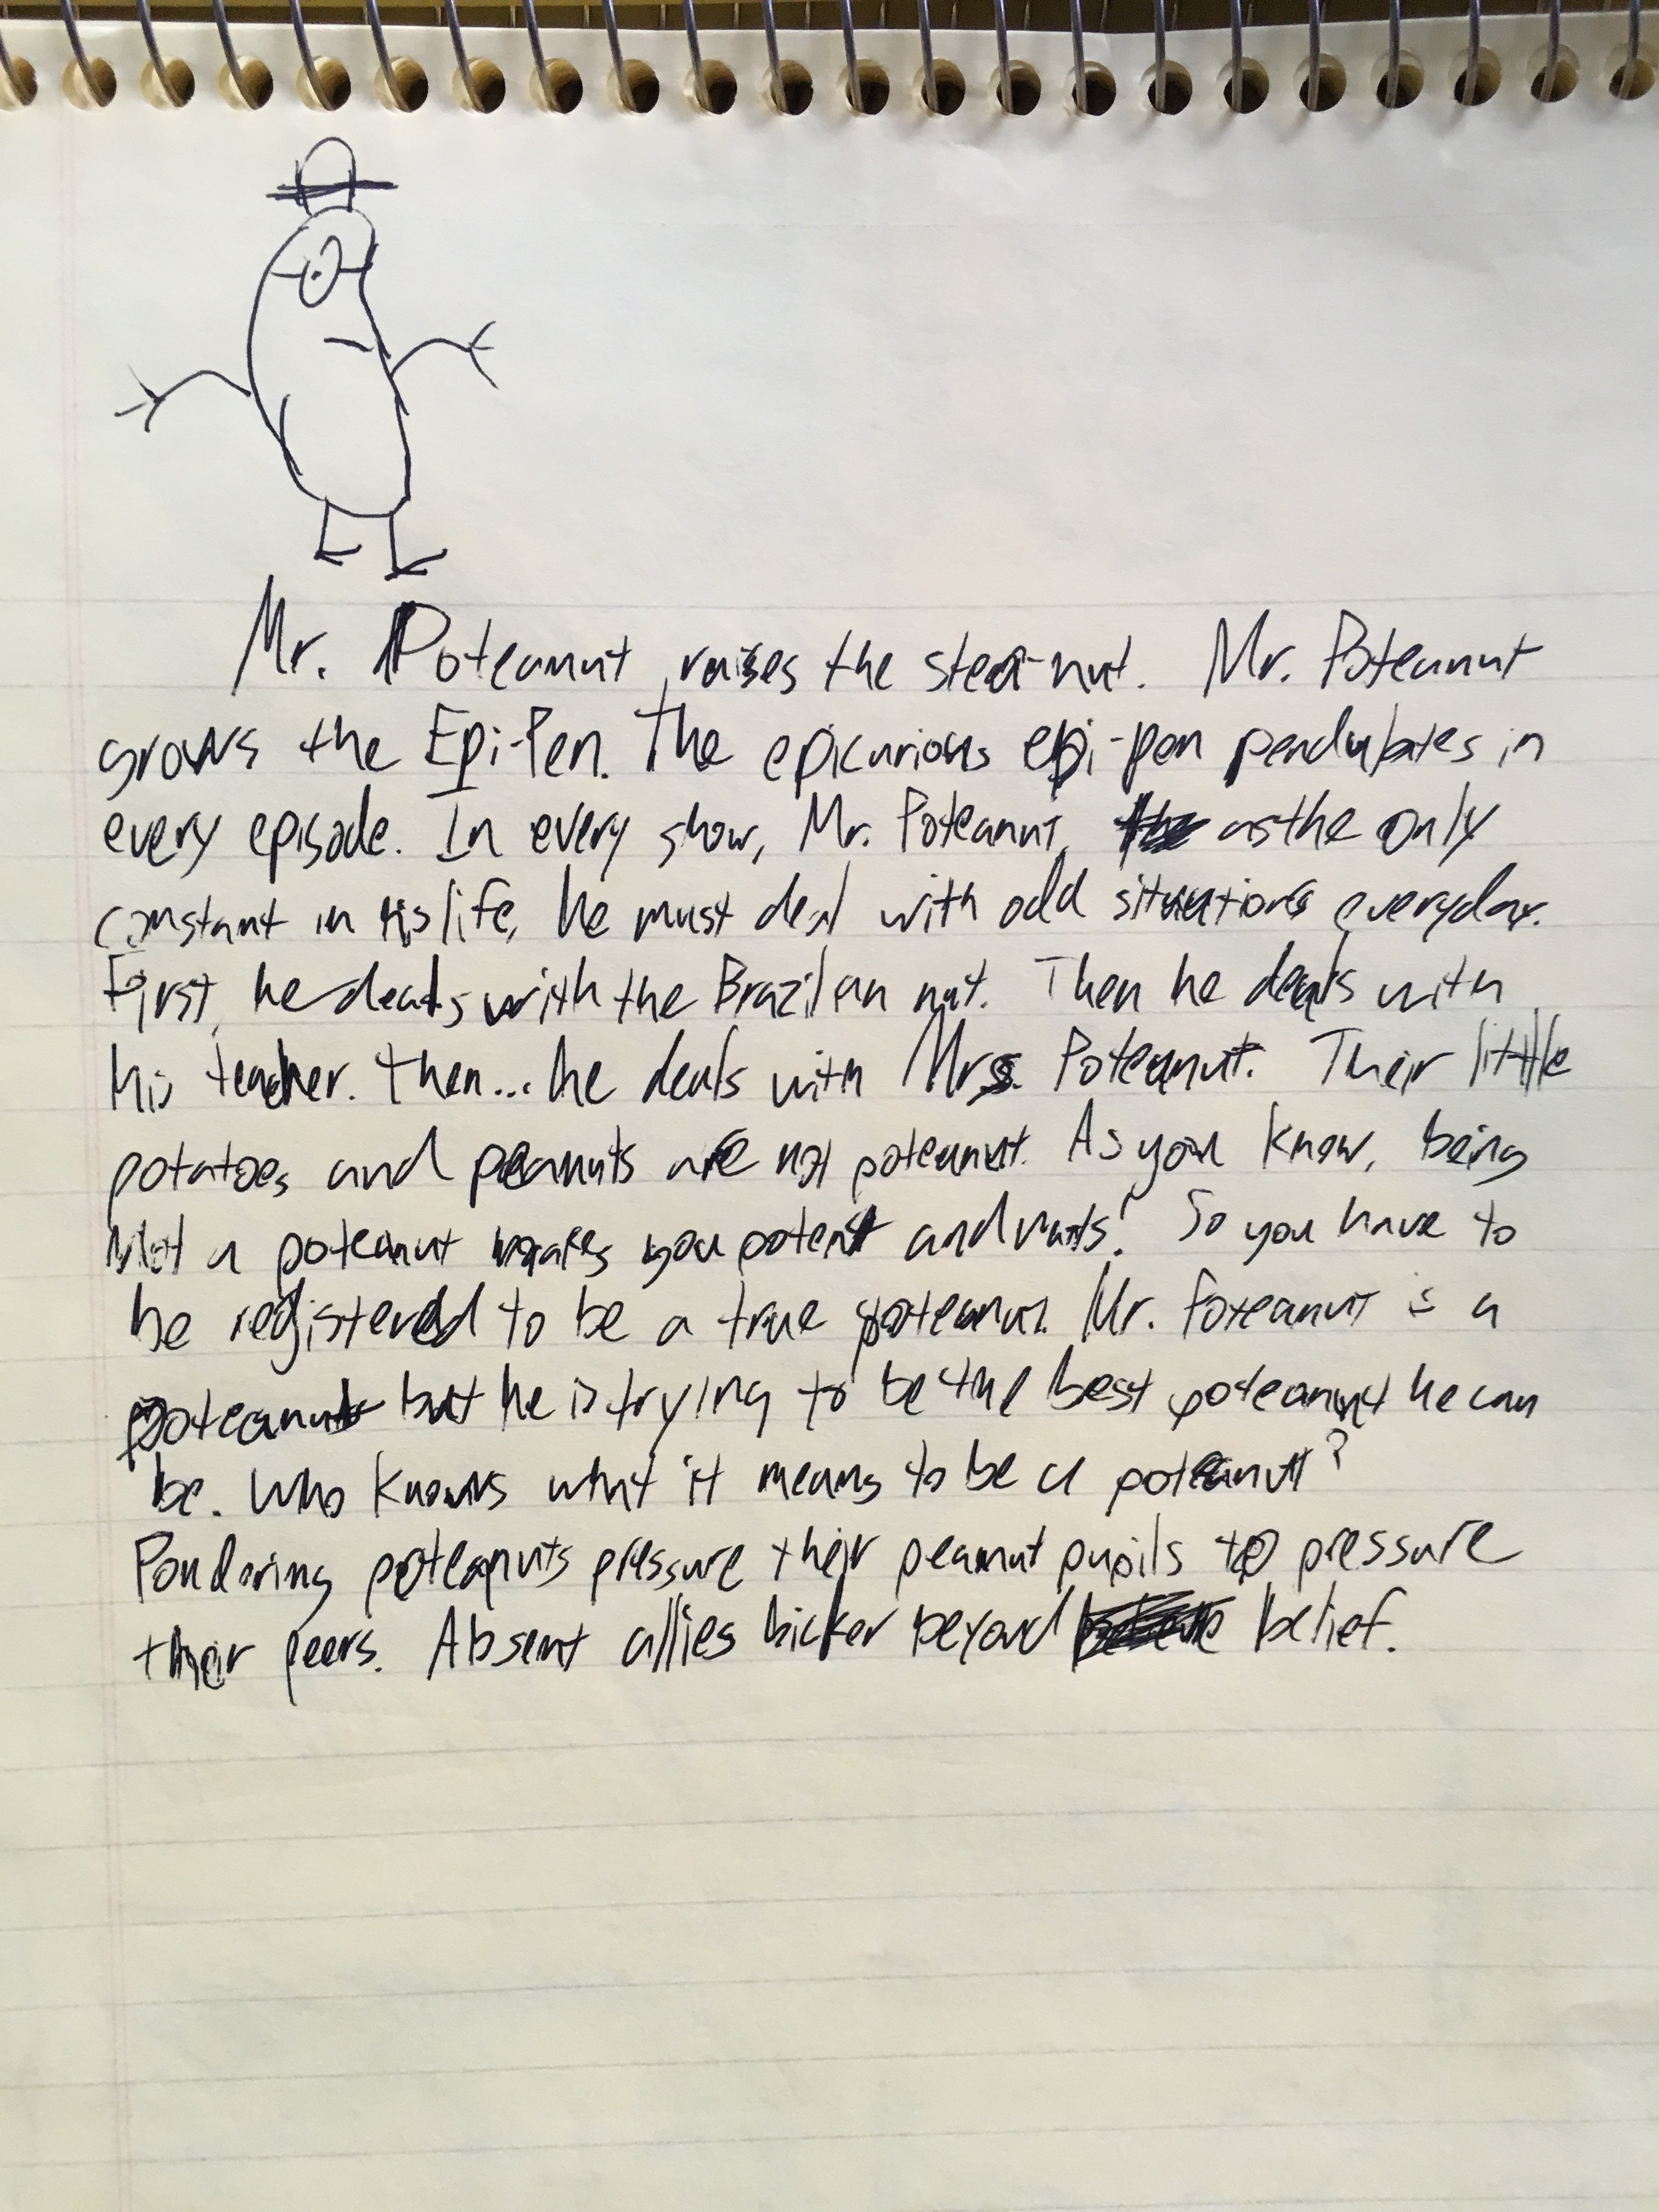 Mr. Poteanut raises the stea-nut. Mr. Poteanut
grows the Epi-Pen. The epicurious epi-pen pendulates in
every episode. In every show, Mr. Poteanut, as the only
constant in his life, he must deal with odd situations everyday.
First, he deals with the Brazilian nut. Then he deals with
his teacher. Then... he deals with Mrs. Poteanut. Their little
potatoes and peanuts are not poteanut. As you know, being
Not a poteanut makes you potent and nuts! So you have to
be registered to be a true poteanut. Mr. Poteanut is a
poteanut but he is trying to be the best poteanut he can
be. Who knows what it means to be a poteanut?
Pondering poteanuts pressure their peanut pupils to pressure
their peers. Absent allies bicker beyond belief.